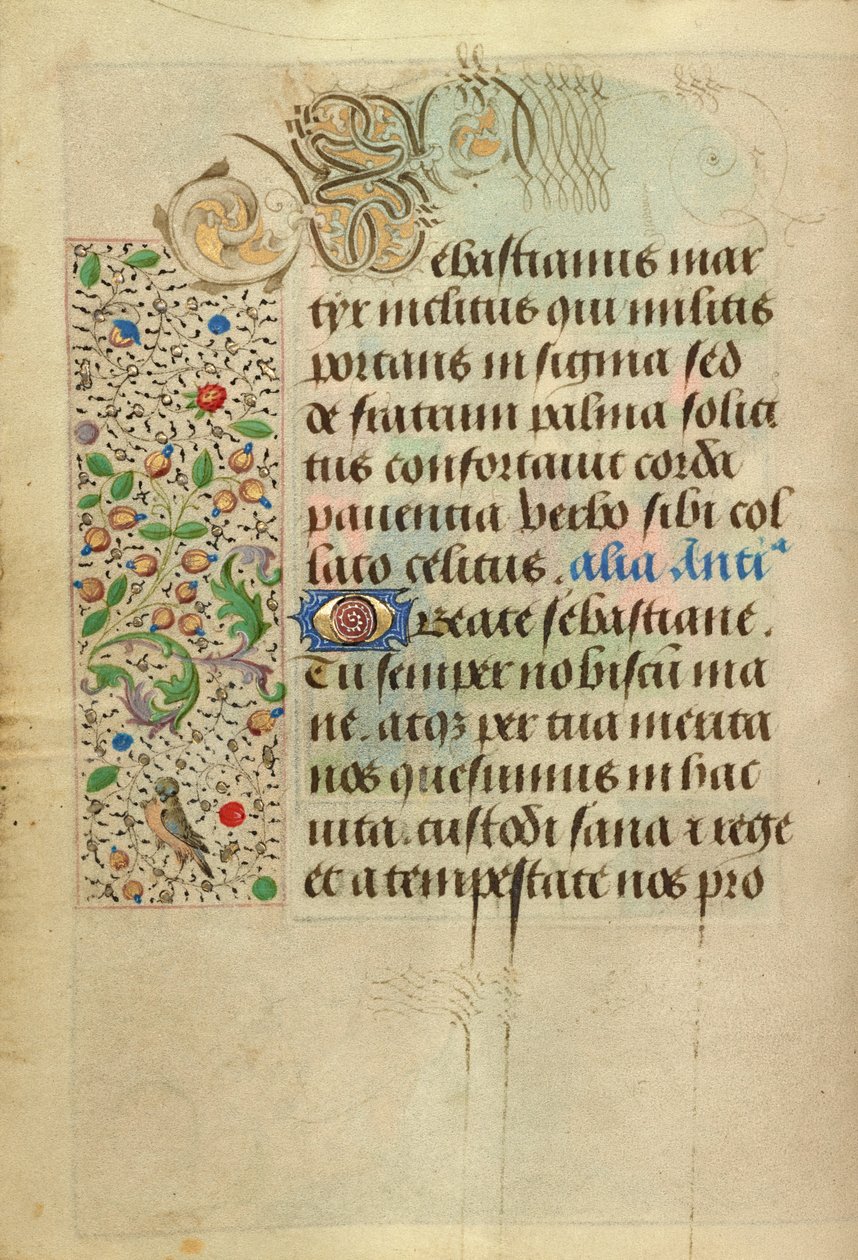 Sebastianus mar
tyr inclitus qui militis
portans insigma sed
de fratrum palma solici
tus confortauit corda
pauentia verbo sibi col
lato celitus. alia Antiᵃ
O Beate sebastiane.
Tu semper nobiscū ma
ne. atqꝫ per tua merita
nos quesumus in hac
uita. custodi sana ⁊ rege
et a tempestate nos pro